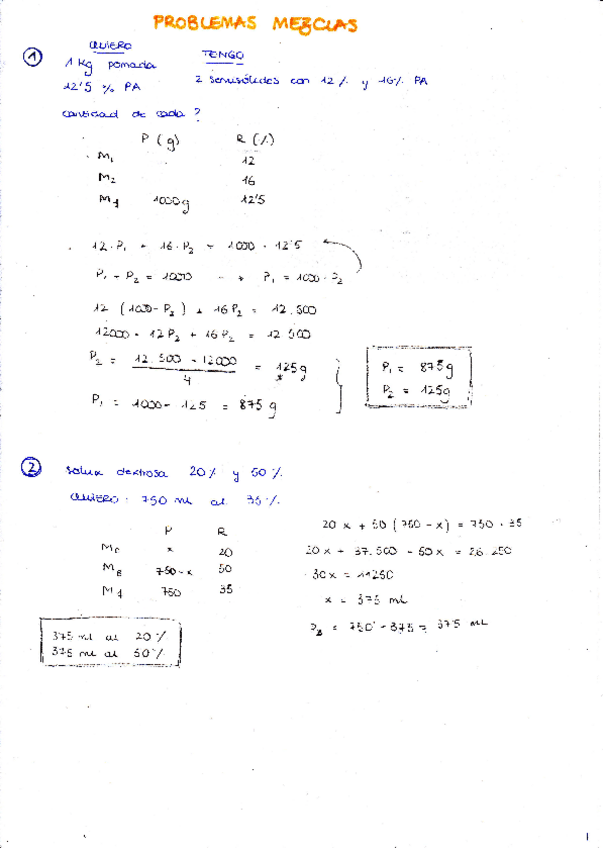 PROBLEMAS MEZCLAS
QUIERO TENGO
① 1 Kg pomada 2 semisólidos con 12 % y 16% PA
12'5 % PA
cantidad de cada ?
P (g) R (%)
M1 12
M2 16
Mf 1000g 12'5
12·P1 + 16·P2 = 1000 · 12'5
P1 + P2 = 1000 → P1 = 1000 - P2
12 (1000 - P2) + 16 P2 = 12.500
12000 - 12P2 + 16P2 = 12 500
P2 = 12.500 - 12000 / 4 = 125g
P1 = 1000 - 125 = 875 g
P1 = 875g
P2 = 125g
② dextrosa 20% y 50%
QUIERO: 750 ml al 35%
P R
x 20
MB 750-x 50
Mf 750 35
20 x + 50 (750 - x) = 750 · 35
20 x + 37.500 - 50 x = 26.250
30x = 11250
x = 375 mL
PB = 750 - 375 = 375 mL
375 ml al 20%
375 ml al 50%
1